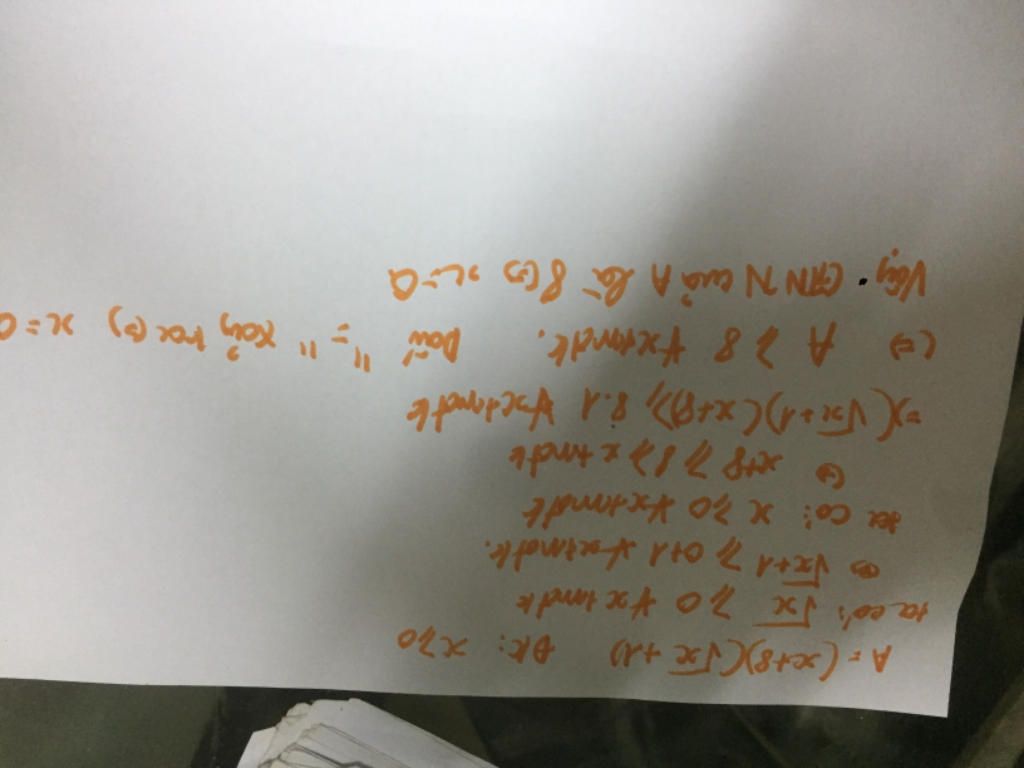 A = (x+8)(√x + 1) ĐK: x ≥ 0
ta có: √x ≥ 0 ∀x tmđk
⇔ √x + 1 ≥ 0+1 ∀x tmđk.
ta có: x ≥ 0 ∀x tmđk
⇔ x+8 ≥ 8 ∀x tmđk
⇒ (√x+1)(x+8) ≥ 8.1 ∀x tmđk
⇔ A ≥ 8 ∀x tmđk. Dấu "=" xảy ra ⇔ x = 0
Vậy GTNN của A là 8 ⇔ x = 0